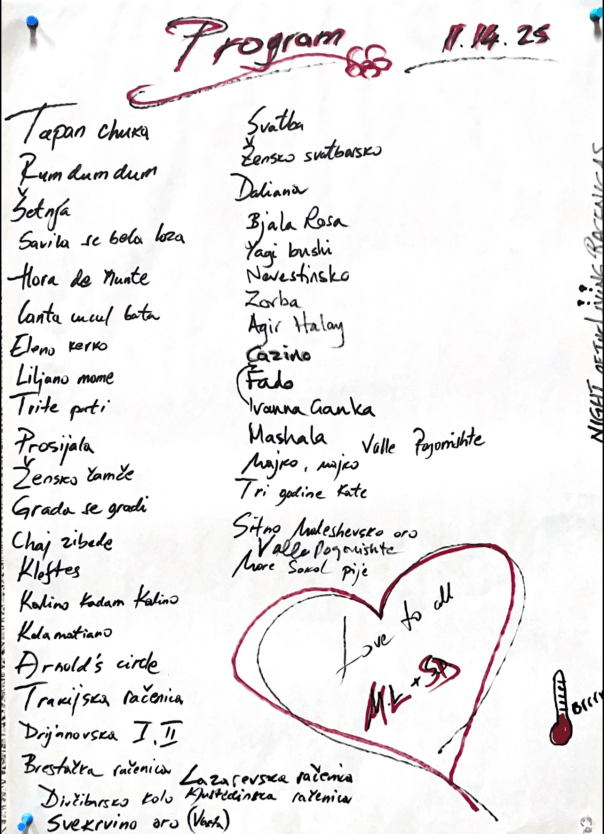 Program 11.14.25
Tapan chuka
Rumdumdum
Šetnja
Savila se bela loza
Hora de Munte
Canta cucul bata
Eleno kerko
Liljano mome
Trite puti
Prosijala
Žensko čamče
Grada se gradi
Chaj zibede
Kleftes
Kalino Kadam Kalino
Kalamatiano
Arnold's circle
Trakijska račenica
Drijanovska I, II
Brestačka račenica
Lazarevska račenica
Divčibarsko kolo Kjustedinska račenica
Svekrvino oro (Vasta)
Svatba
Žensko svatbarsko
Daliana
Bjala Rosa
Yagi bushi
Nevestinsko
Zorba
Agir Halay
Čazino
Fado
Ivanna Ganka
Mashala Valle Pogonishte
Majko, majko
Tri godine Kate
Sitno Maleshevsko oro
Valle Pogonishte
More Sokol pije
Love to all
M.L + SB
NIGHT OF THE LIVING RACENICAS !!
Brrrr